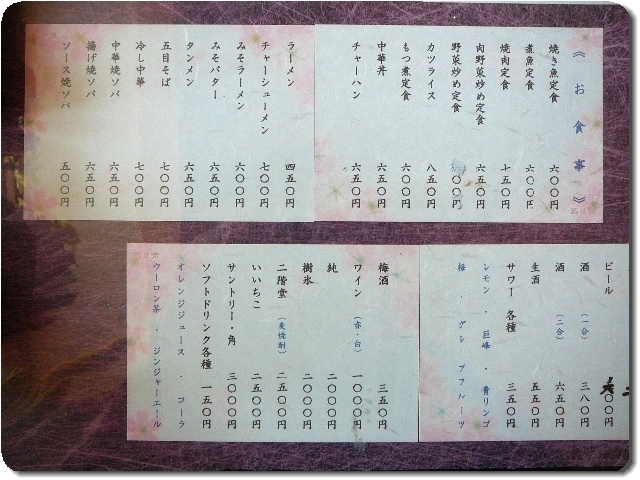 《お食事》
焼き魚定食 六〇〇円
煮魚定食 六〇〇円
焼肉定食 七五〇円
肉野菜炒め定食 六五〇円
野菜炒め定食 〇〇円
カツライス 八五〇円
もつ煮定食 六〇〇円
中華丼 六五〇円
チャーハン 六五〇円
ラーメン 四五〇円
チャーシューメン 七〇〇円
みそラーメン 六〇〇円
みそバター 六五〇円
タンメン 六五〇円
五目そば 七〇〇円
冷し中華 七〇〇円
中華焼ソバ 六五〇円
揚げ焼ソバ 六五〇円
ソース焼ソバ 五〇〇円
ビール 〇〇円
酒 (一合) 三八〇円
酒 (二合) 六五〇円
生酒 五五〇円
サワー 各種 三五〇円
レモン・巨峰・青リンゴ
梅・グレープフルーツ
梅酒 三五〇円
ワイン (赤・白) 一〇〇〇円
純 二〇〇〇円
樹氷 二〇〇〇円
二階堂 (麦焼酎) 二五〇〇円
いいちこ 二五〇〇円
サントリー・角 三〇〇〇円
ソフトドリンク各種 一五〇円
オレンジジュース・コーラ
ウーロン茶・ジンジャーエール